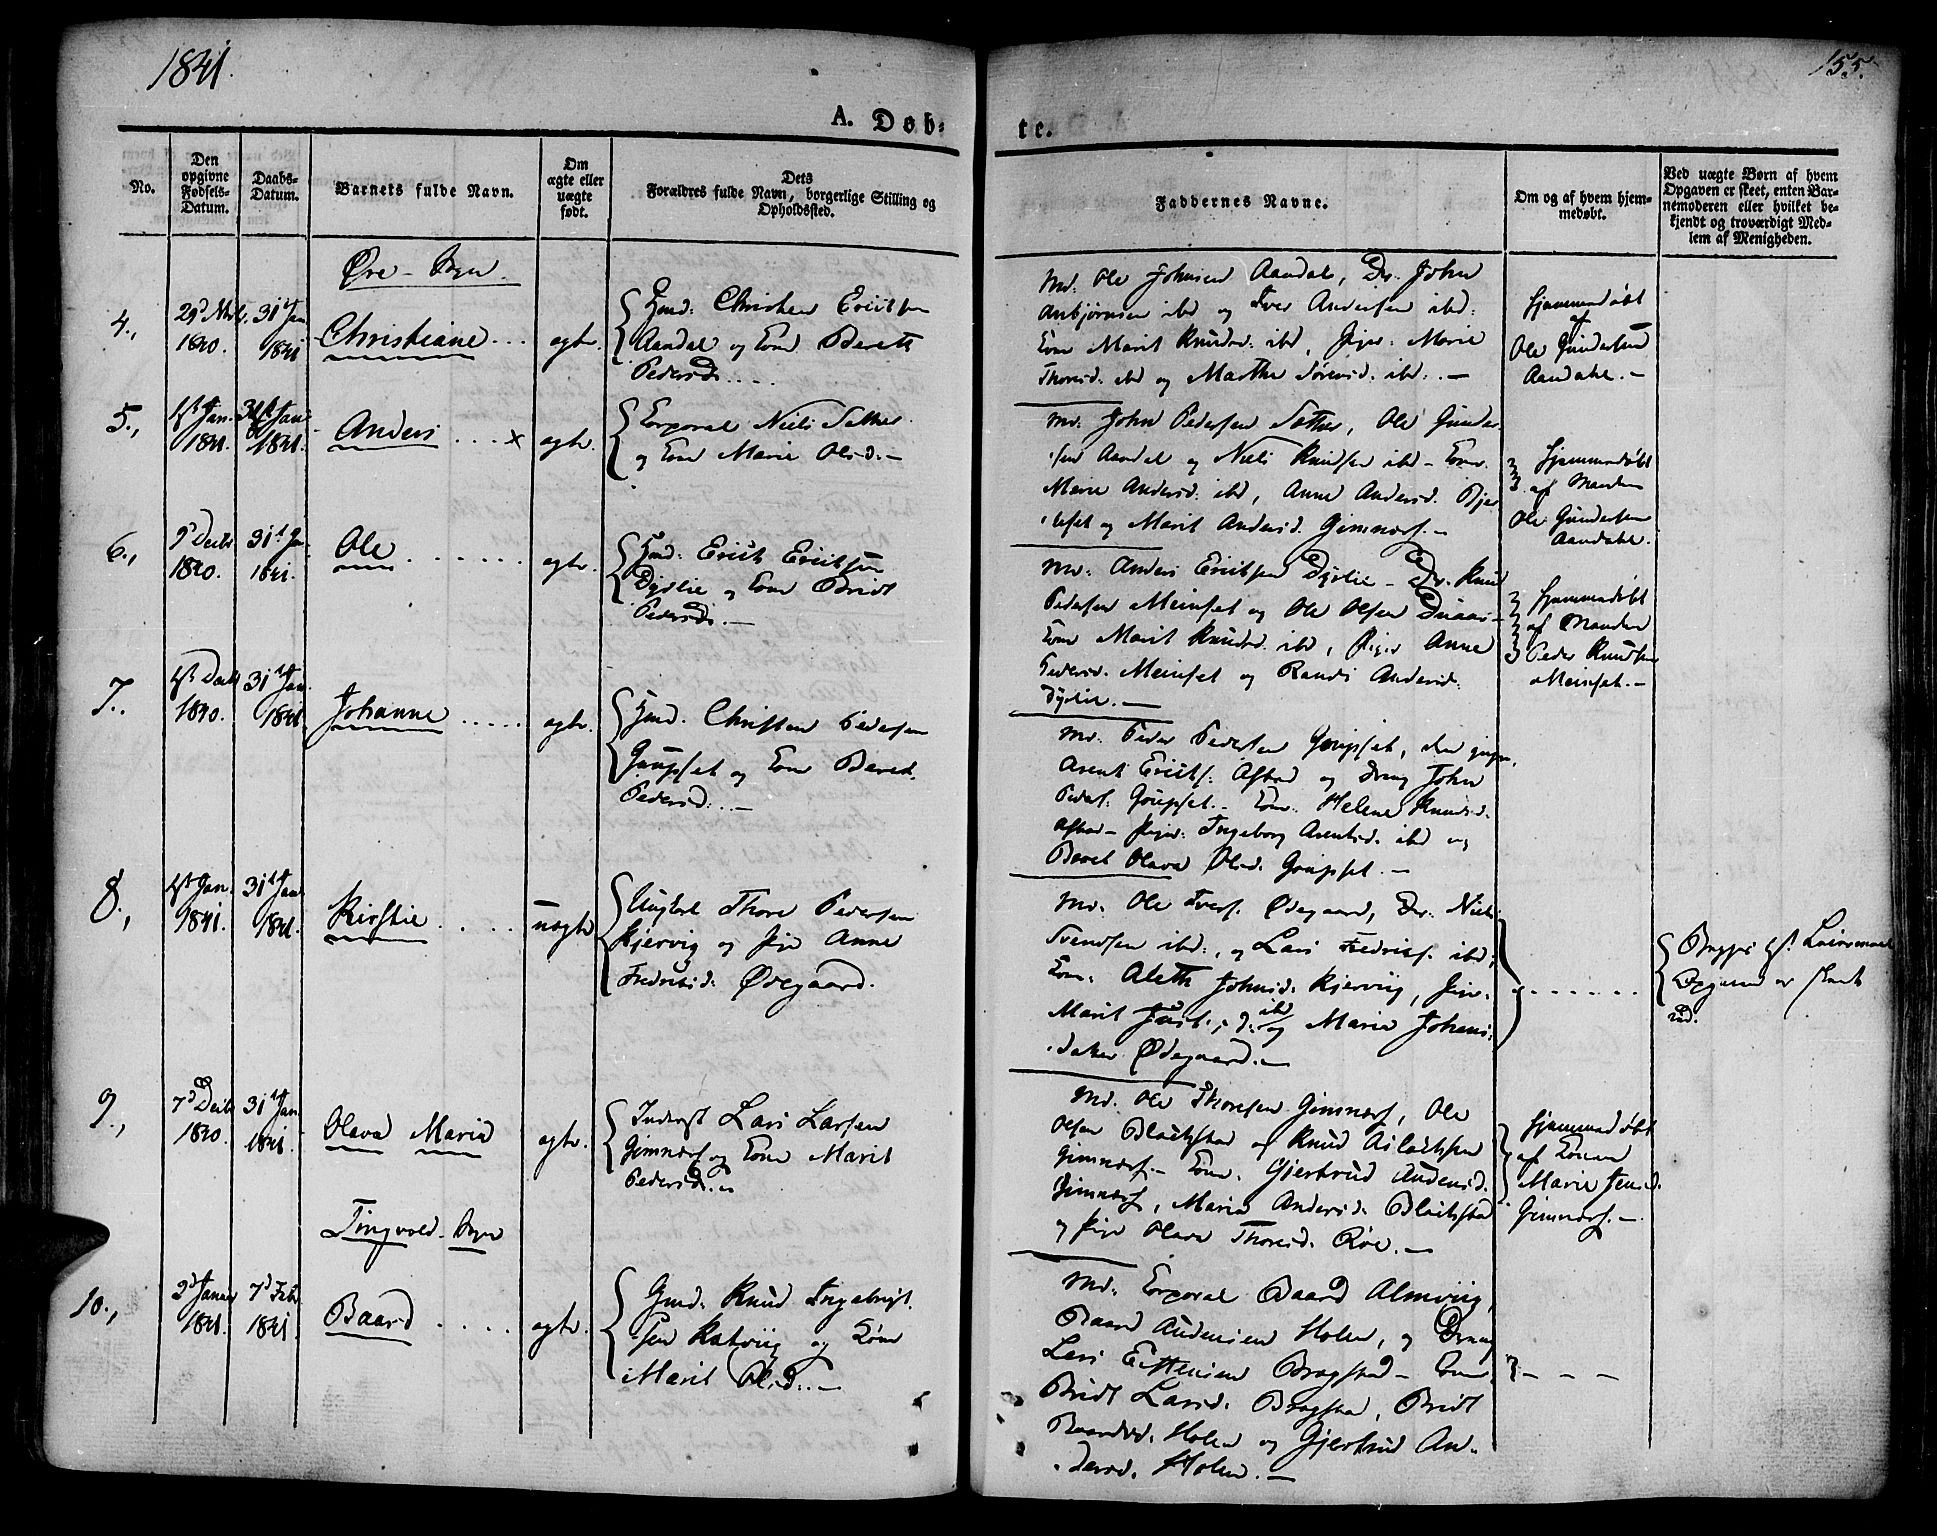 1841.
155.
A. Døb-
te.
No.
Den opgivne Fødsels-Datum.
Daabs-Datum.
Barnets fulde Navn.
Om ægte eller uægte født.
Dets Forældres fulde Navn, borgerlige Stilling og Opholdssted.
Faddernes Navne.
Om og af hvem hjem-medøbt.
Ved uægte Børn af hvem Opgaven er skeet, enten Bar-nemoderen eller hvilket be-kjendt og troværdigt Med-lem af Menigheden.
Øre - Sogn.
4.,
1840.
31t Jan
1841
Christiane
ægte.
Gmd. Christen Ericksen
Aandal og Kone Bereth
Pedersd.
Md. Ole Johnsen Aandal, Dr. John
Anbjørnsen ibd og Iver Andersen ibd:
Kone Marit Knudsd. ibd, Pige: Marie
Thoresd. ibd og Marthe Sørensd. ibd. -
Hjemmedøbt
af
Ole Gundersen
Aandahl. -
5.,
Jan.
1841.
31t Jan
1841.
Anders x
ægte.
Corporal Niels Sæther
og Kone Marie Olsd. -
Md. John Pedersen Sæther, Ole Gunder-
sen Aandal og Niels Knudsen ibd - Kone
Marie Andersd. ibd, Anne Andersd. Bje
og Marit Andersd. Gimnæs. -
Hjemmedøbt
af Manden
Ole Gundersen
Aandahl.
6.,
1840.
31t Jan
1841.
Ole
ægte.
Gmd. Erick Ericksen
Dyrlie og Kone Bridt
Pedersd. -
Md. Anders Ericksen Dyrlie - Dr. Knud
Pedersen Meinset og Ole Olsen
Kone Marit Knudsd. ibd, Piger Anne
Pedersd. Meinset og Randi Andersd.
Dyrlie. -
Hjemmedøbt
af Manden
Peder Knudsen
Meinset. -
7.,
1840.
31t Jan.
1841
Johanne
ægte.
Gmd. Christen Pedersen
Gaupset og Kone Bereth
Pedersd. -
Md. Peder Pedersen Goupset, den yngre,
Arent Ericks. Afstad og Dreng John
Peders. Goupset - Kone. Helene Knudsd.
Afstad - Piger. Ingeborg Arentsd. ibd og
Beret Olava Olsd. Goupset. -
8.,
Jan.
1841.
31t Jan
1841.
Kirstie
uægte
Ungkarl Thore Pedersen
Kjørvig og Pige Anne
Fredriksd. Ødegaard.
Md. Ole Ivers. Ødegaard, Dr. Niels
Svendsen ibd:, og Lars Fredriks. ibd;
Kone. Aleth Johnsd. Kjørvig, Piger
Marit ibd og Marie Johans-
datter Ødegaard. -
9.,
1840.
31t Jan.
1841.
Olava Maria
ægte.
Inderst Lars Larsen
Gimnæs og Kone Marit
Pedersd. -
Md. Ole Thoresen Gimnæs, Ole
Olsen Blækstad og Knud Aslaksen
Gimnæs. - Kone. Gjertrud Andersd.
Gimnæs, Maria Andersd. Blækstad
og Pige Olava Thoresd. Røe. -
Hjemmedøbt
af Konen
Marie Jensd.
Gimnæs. -
Tingvold - Sogn
10.,
1841.
7d Feb
1841.
Baard
ægte.
Gmd. Knud Ingebrigt-
sen Ratvig og Kone
Marit Olsd. -
Md. Corporal Baard Almvig,
Baard Andersen Holen, og Dreng
Lars Estensen Bragstad - Kone
Bridt Larsd. Bragstad, Bridt
Baardsd. Holen og Gjertrud An-
dersd. Holen. -